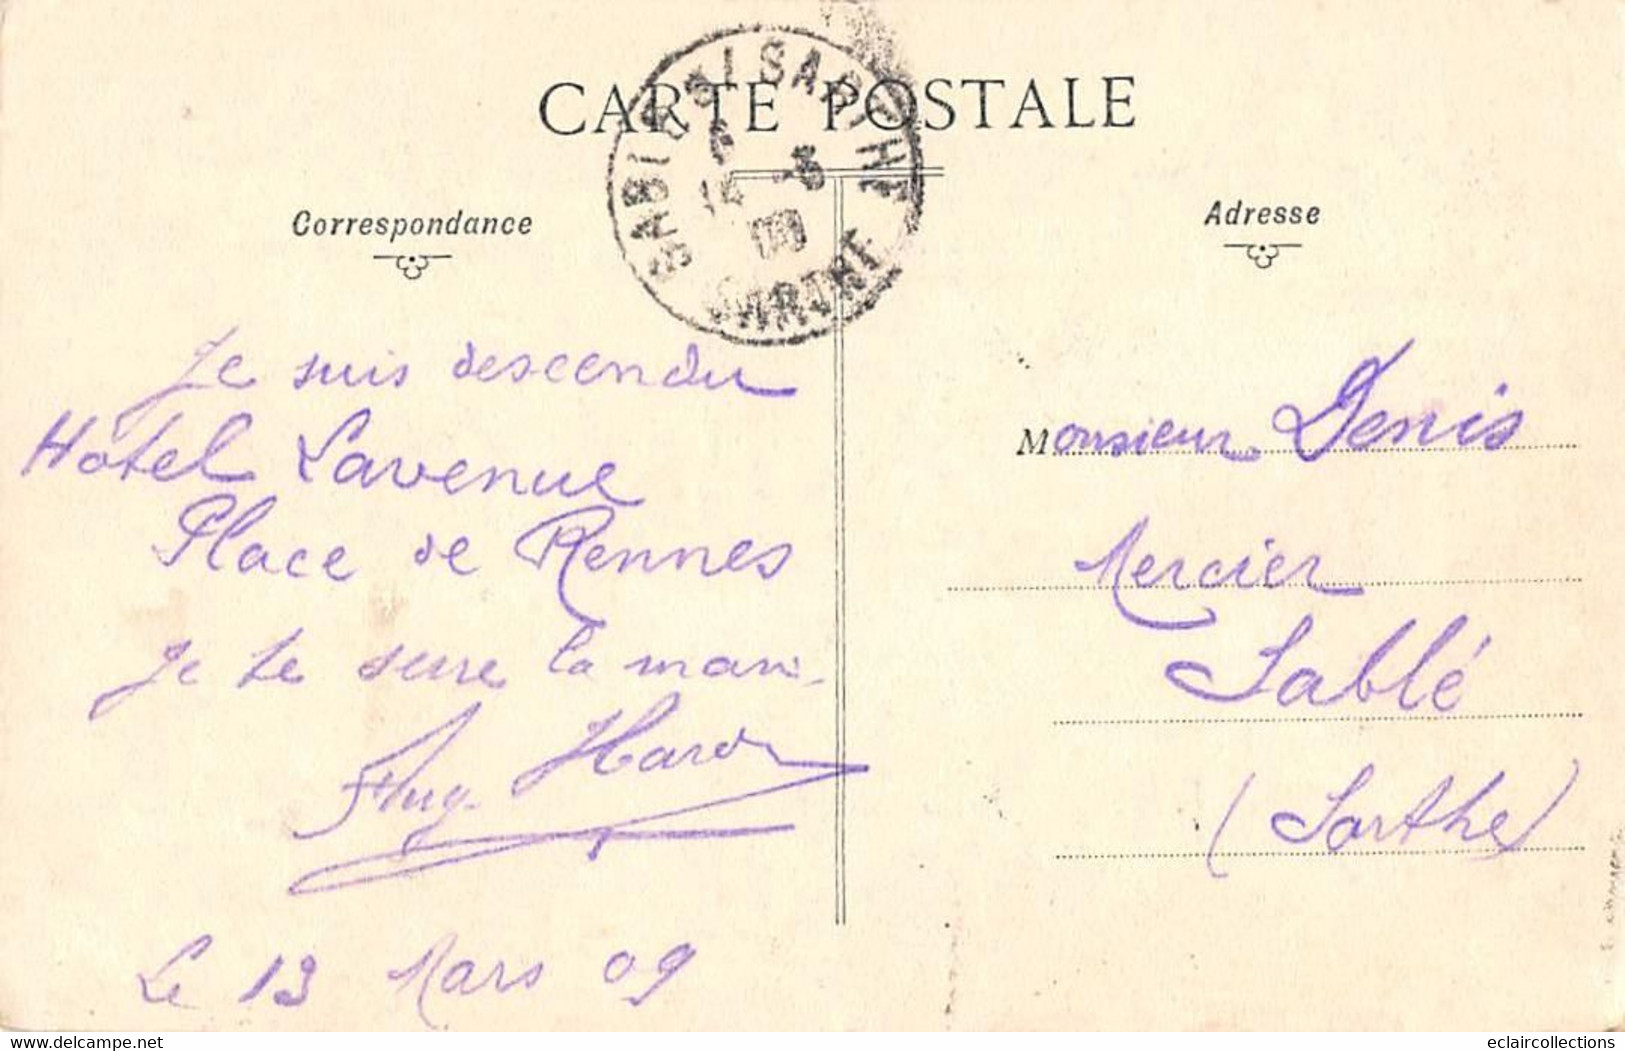 CARTE POSTALE
SABLÉ S/ SARTHE
14 -3
09
SARTHE
Correspondance
Adresse
Je suis descendu
Hôtel Lavenue
Place de Rennes
Je te serre la main
Aug. Hard
Le 13 Mars 09
Monsieur Denis
Mercier
Sablé
(Sarthe)
www.delcampe.net
eclaircollections